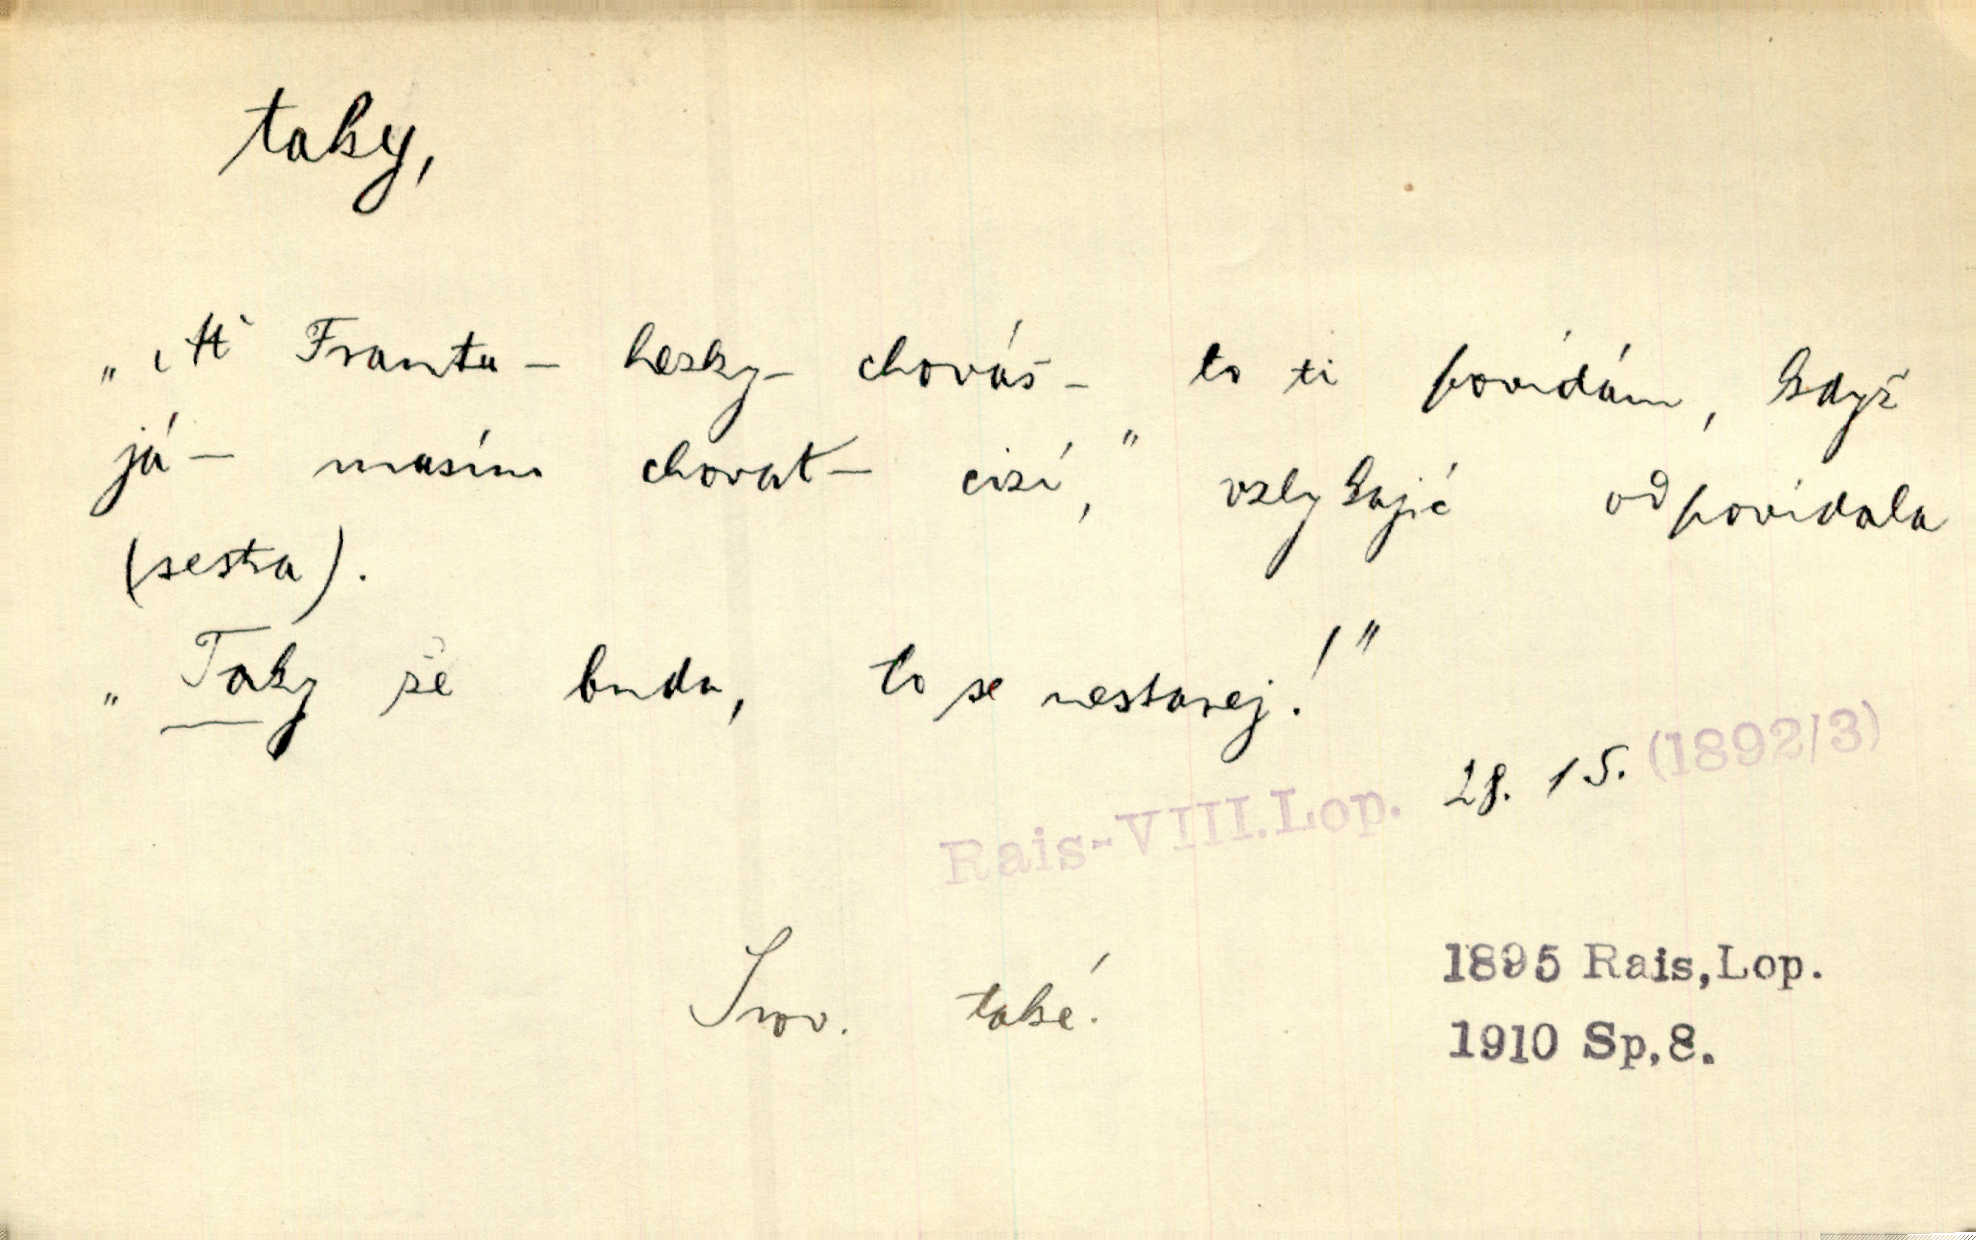 taky,
„Ať Frantu – hezky – chováš – to ti povídám, když
já – musím chovat – cizí,“ vzlykajíc odpovídala
(sestra).
„Taky že budu, to se nestarej!“
Rais-VIII.Lop. 28. 15. (1892/3)
Srov. také.
1895 Rais,Lop.
1910 Sp,8.